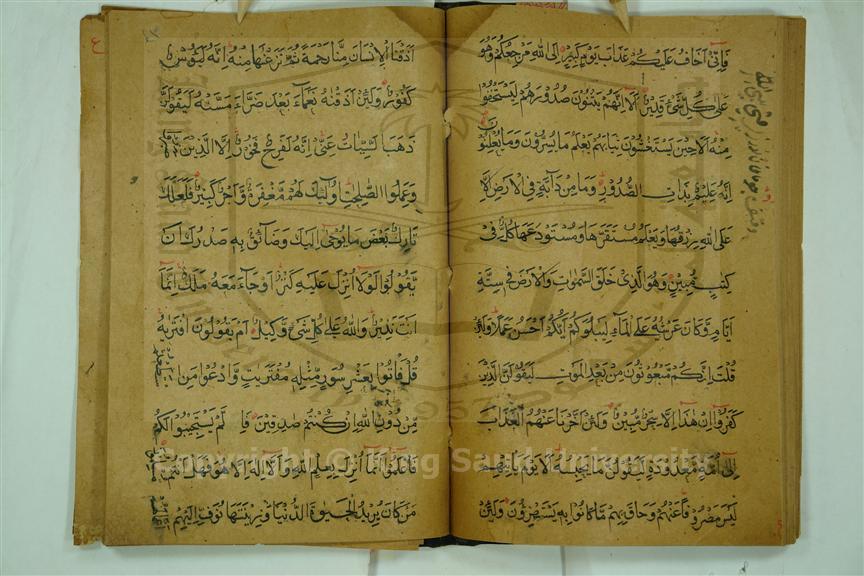 فَاِنِّىْ اَخَافُ عَلَيْكُمْ عَذَابَ يَوْمٍ كَبِيْرٍ اِلَى اللهِ مَرْجِعُكُمْ وَهُوَ
عَلٰى كُلِّ شَىْءٍ قَدِيْرٌ اَلَا اِنَّهُمْ يَثْنُوْنَ صُدُوْرَهُمْ لِيَسْتَخْفُوْا
مِنْهُ اَلَا حِيْنَ يَسْتَغْشُوْنَ ثِيَابَهُمْ يَعْلَمُ مَا يُسِرُّوْنَ وَمَا يُعْلِنُوْنَ
اِنَّهُ عَلِيْمٌ بِذَاتِ الصُّدُوْرِ وَمَا مِنْ دَآبَّةٍ فِى الْاَرْضِ اِلَّا
عَلَى اللهِ رِزْقُهَا وَيَعْلَمُ مُسْتَقَرَّهَا وَمُسْتَوْدَعَهَا كُلٌّ فِىْ
كِتٰبٍ مُّبِيْنٍ وَهُوَ الَّذِىْ خَلَقَ السَّمٰوٰتِ وَالْاَرْضَ فِىْ سِتَّةِ
اَيَّامٍ وَّكَانَ عَرْشُهٗ عَلَى الْمَآءِ لِيَبْلُوَكُمْ اَيُّكُمْ اَحْسَنُ عَمَلًا وَلَئِنْ
قُلْتَ اِنَّكُمْ مَّبْعُوْثُوْنَ مِنْ بَعْدِ الْمَوْتِ لَيَقُوْلَنَّ الَّذِيْنَ
كَفَرُوْا اِنْ هٰذَا اِلَّا سِحْرٌ مُّبِيْنٌ وَلَئِنْ اَخَّرْنَا عَنْهُمُ الْعَذَابَ
اِلٰى اُمَّةٍ مَّعْدُوْدَةٍ لَّيَقُوْلُنَّ مَا يَحْبِسُهٗ اَلَا يَوْمَ يَاْتِيْهِمْ
لَيْسَ مَصْرُوْفًا عَنْهُمْ وَحَاقَ بِهِمْ مَّا كَانُوْا بِهٖ يَسْتَهْزِءُوْنَ وَلَئِنْ
اَذَقْنَا الْاِنْسَانَ مِنَّا رَحْمَةً ثُمَّ نَزَعْنٰهَا مِنْهُ اِنَّهٗ لَيَئُوْسٌ
كَفُوْرٌ وَلَئِنْ اَذَقْنٰهُ نَعْمَآءَ بَعْدَ ضَرَّآءَ مَسَّتْهُ لَيَقُوْلَنَّ
ذَهَبَ السَّيِّاٰتُ عَنِّىْ اِنَّهٗ لَفَرِحٌ فَخُوْرٌ اِلَّا الَّذِيْنَ
وَعَمِلُوا الصّٰلِحٰتِ اُولٰٓئِكَ لَهُمْ مَّغْفِرَةٌ وَّاَجْرٌ كَبِيْرٌ فَلَعَلَّكَ
تَارِكٌ بَعْضَ مَا يُوْحٰى اِلَيْكَ وَضَآئِقٌ بِهٖ صَدْرُكَ اَنْ
يَّقُوْلُوْا لَوْلَا اُنْزِلَ عَلَيْهِ كَنْزٌ اَوْ جَآءَ مَعَهٗ مَلَكٌ اِنَّمَا
اَنْتَ نَذِيْرٌ وَاللهُ عَلٰى كُلِّ شَىْءٍ وَّكِيْلٌ اَمْ يَقُوْلُوْنَ افْتَرٰىهُ
قُلْ فَاْتُوْا بِعَشْرِ سُوَرٍ مِّثْلِهٖ مُفْتَرَيٰتٍ وَّادْعُوْا مَنِ
مِّنْ دُوْنِ اللهِ اِنْ كُنْتُمْ صٰدِقِيْنَ فَاِ لَّمْ يَسْتَجِيْبُوْا لَكُمْ
فَاعْلَمُوْا اَنَّمَا اُنْزِلَ بِعِلْمِ اللهِ وَاَنْ لَّا اِلٰهَ اِلَّا هُوَ فَهَلْ اَنْتُمْ
مَنْ كَانَ يُرِيْدُ الْحَيٰوةَ الدُّنْيَا وَزِيْنَتَهَا نُوَفِّ اِلَيْهِمْ
Copyright © King Saud University
1957